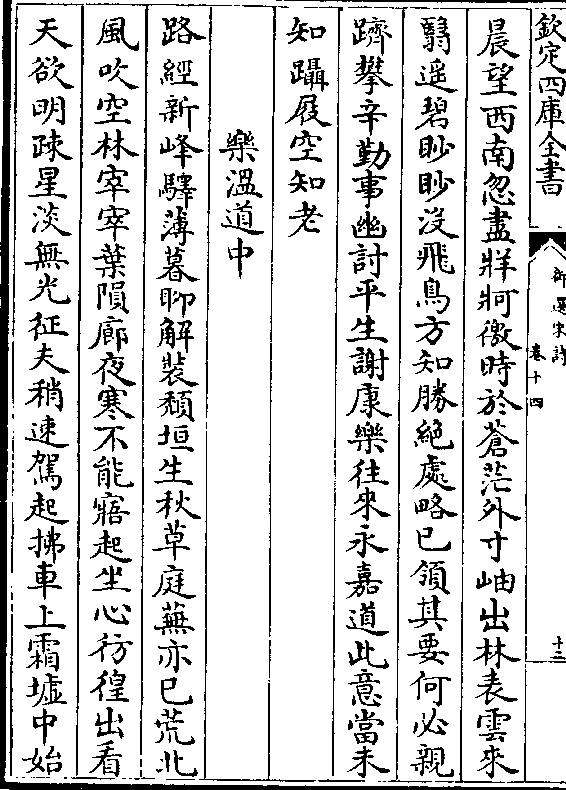 欽定四庫全書
御選宋詩
卷十四
十二
晨望西南忽盡牂牁徼時於蒼茫外寸岫出林表雲來
翳遥碧眇眇沒飛鳥方知勝絶處略已領其要何必親
躋攀辛勤事幽討平生謝康樂往來永嘉道此意當未
知躡屐空知老
樂温道中
路經新峰驛薄暮聊解裝頽垣生秋草庭蕪亦已荒北
風吹空林宰宰葉隕廊夜寒不能寤起坐心彷徨出看
天欲明疎星淡無光征夫稍速駕起拂車上霜墟中始